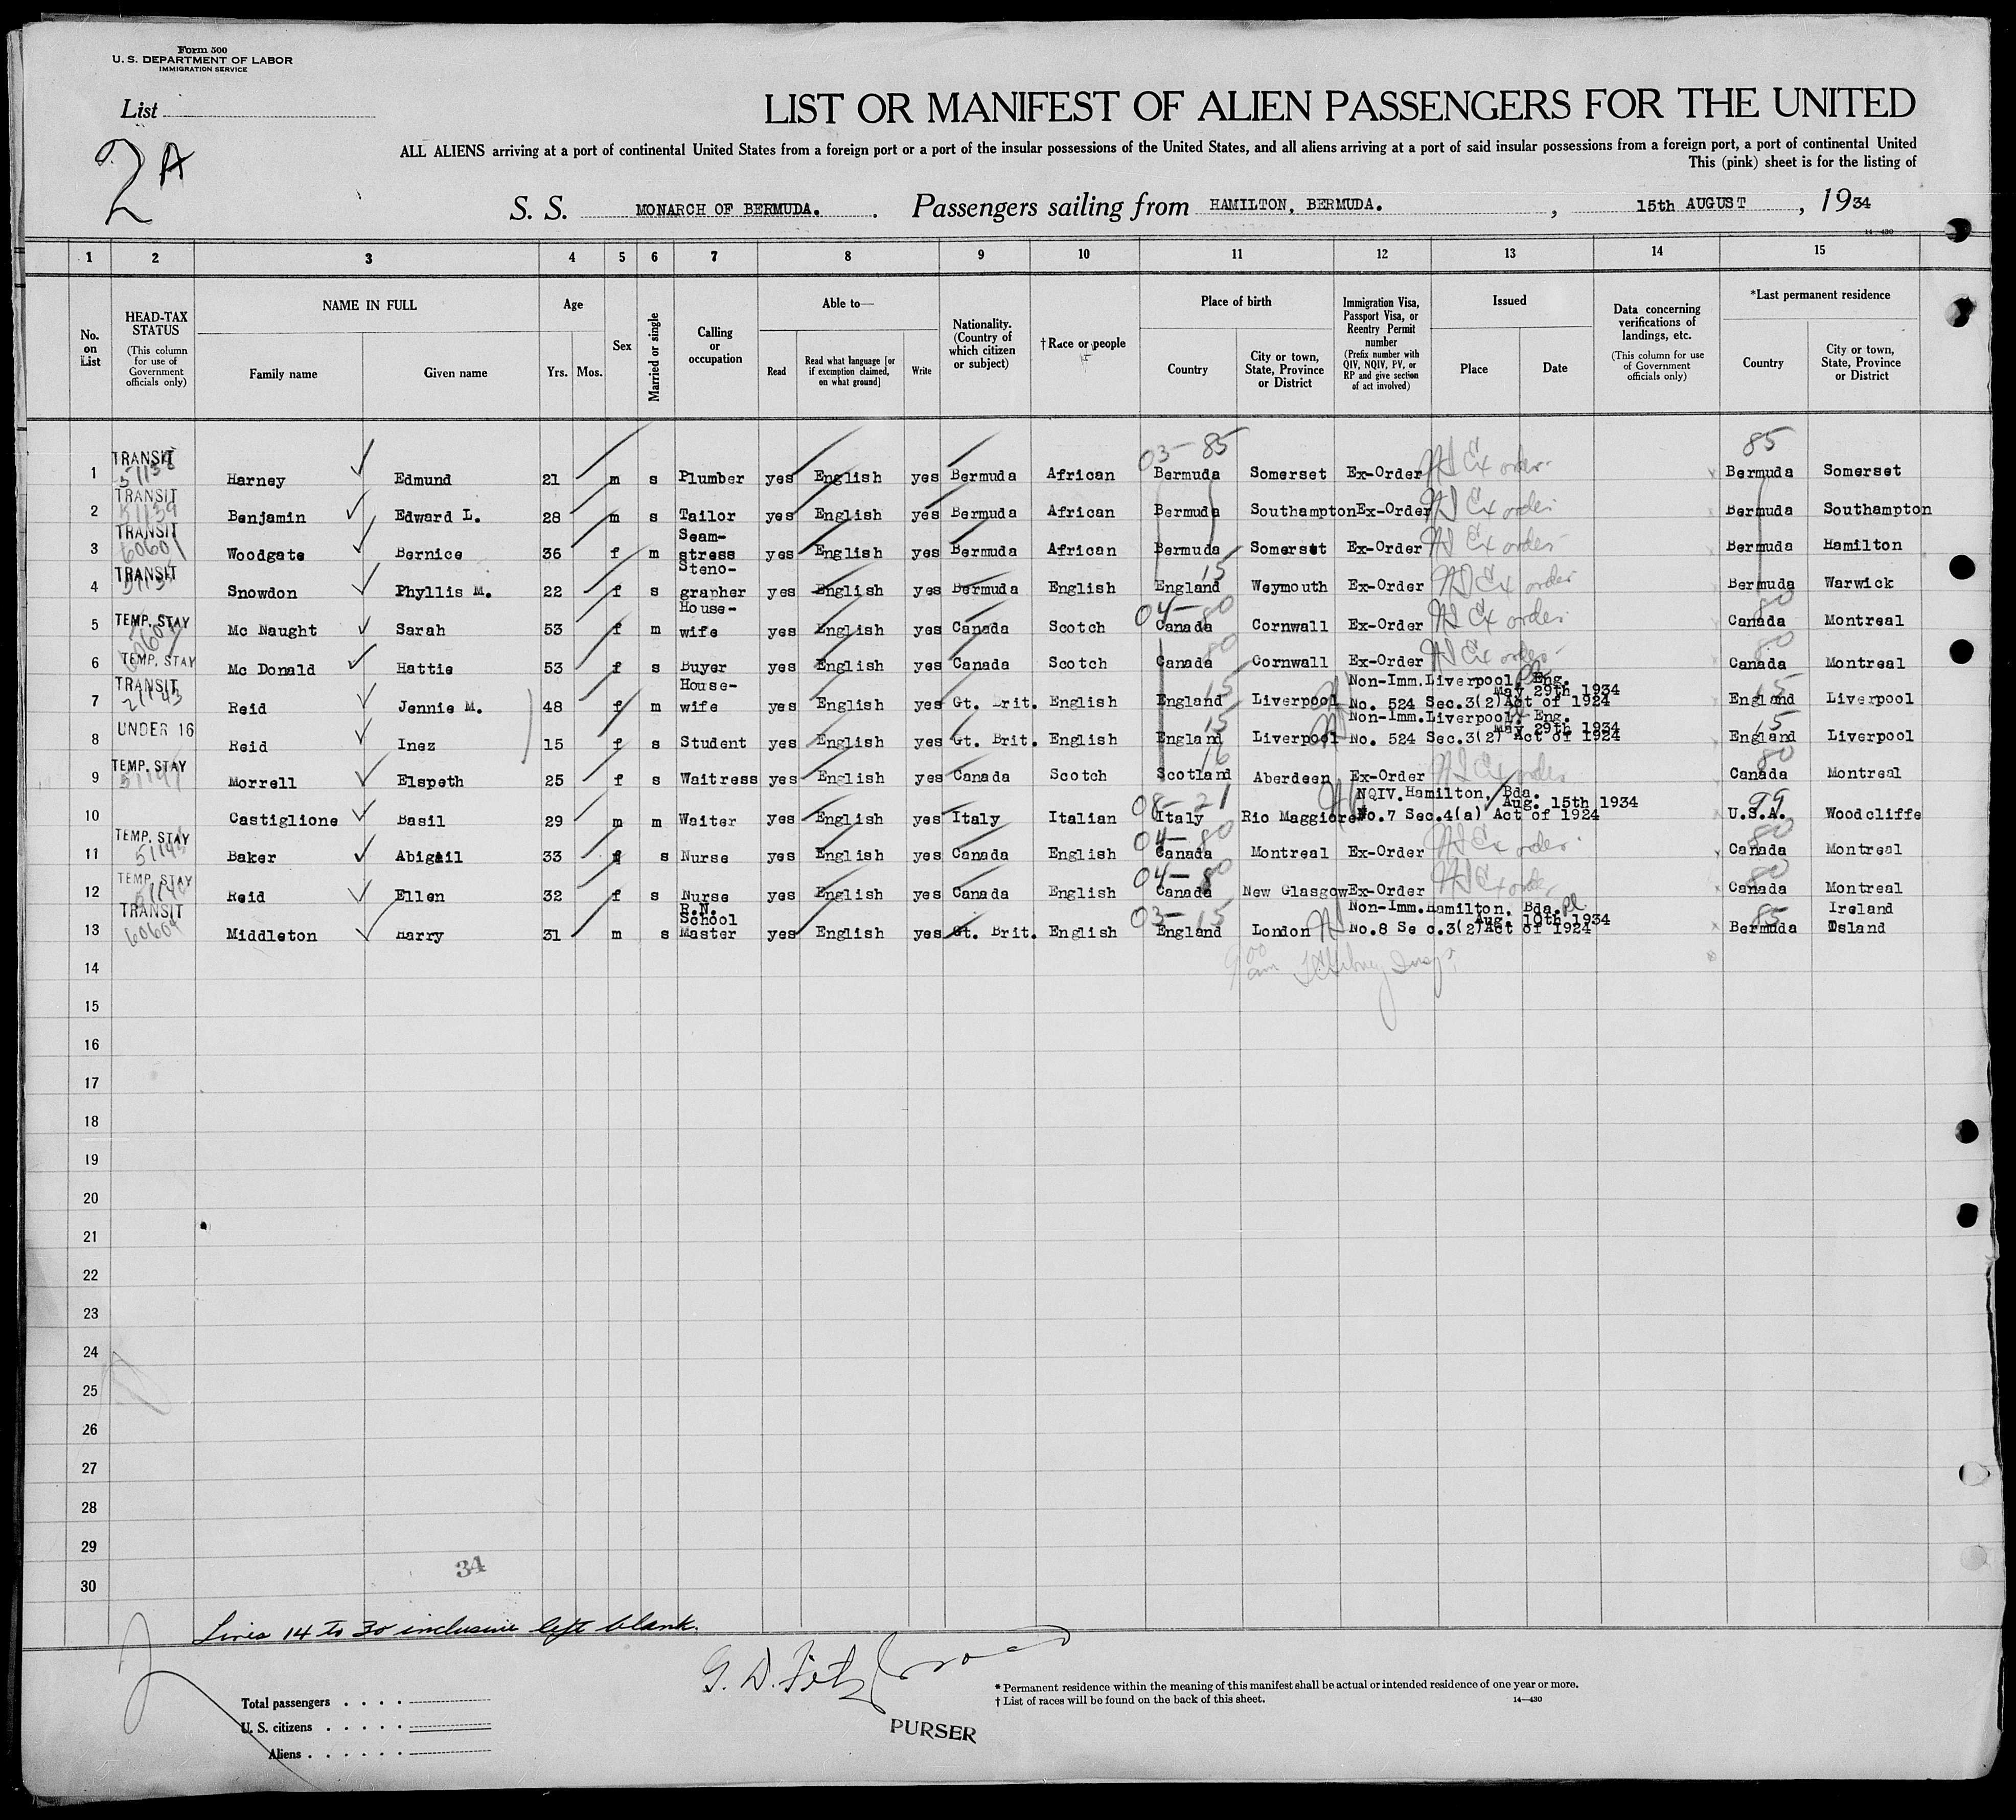 Form 500
U. S. DEPARTMENT OF LABOR
IMMIGRATION SERVICE
List
2 A
LIST OR MANIFEST OF ALIEN PASSENGERS FOR THE UNITED
ALL ALIENS arriving at a port of continental United States from a foreign port or a port of the insular possessions of the United States, and all aliens arriving at a port of said insular possessions from a foreign port, a port of continental United
This (pink) sheet is for the listing of
S. S. MONARCH OF BERMUDA. Passengers sailing from HAMILTON, BERMUDA. , 15th AUGUST , 1934
14—430
1 2 3 4 5 6 7 8 9 10 11 12 13 14 15
No. on List
HEAD-TAX STATUS
(This column for use of Government officials only)
NAME IN FULL
Family name Given name
Age
Yrs. Mos.
Sex
Married or single
Calling or occupation
Able to—
Read Read what language [or if exemption claimed, on what ground] Write
Nationality. (Country of which citizen or subject)
†Race or people
Place of birth
Country City or town, State, Province or District
Immigration Visa, Passport Visa, or Reentry Permit number
(Prefix number with QIV, NQIV, PV, or RP and give section of act involved)
Issued
Place Date
Data concerning verifications of landings, etc.
(This column for use of Government officials only)
*Last permanent residence
Country City or town, State, Province or District
03-85 85
1 TRANSIT Harney Edmund 21 m s Plumber yes English yes Bermuda African Bermuda Somerset Ex-Order Ex order Bermuda Somerset
2 TRANSIT 51139 Benjamin Edward L. 28 m s Tailor yes English yes Bermuda African Bermuda Southampton Ex-Order Ex order Bermuda Southampton
3 TRANSIT 60601 Woodgate Bernice 36 f m Seam-stress yes English yes Bermuda African Bermuda Somerset Ex-Order Ex order Bermuda Hamilton
4 TRANSIT Snowdon Phyllis M. 22 f s Steno-grapher yes English yes Bermuda English England 15 Weymouth Ex-Order Ex order Bermuda Warwick
5 TEMP. STAY Mc Naught Sarah 53 f m House-wife yes English yes Canada Scotch 04-80 Canada Cornwall Ex-Order Ex order 80 Canada Montreal
6 TEMP. STAY Mc Donald Hattie 53 f s Buyer yes English yes Canada Scotch 80 Canada Cornwall Ex-Order Ex order 80 Canada Montreal
7 TRANSIT 21143 Reid Jennie M. 48 f m House-wife yes English yes Gt. Brit. English England 15 Liverpool Non-Imm. Liverpool, Eng. May 29th 1934 No. 524 Sec.3(2) Act of 1924 15 England Liverpool
8 UNDER 16 Reid Inez 15 f s Student yes English yes Gt. Brit. English England 15 Liverpool Non-Imm. Liverpool, Eng. May 29th 1934 No. 524 Sec.3(2) Act of 1924 15 England Liverpool
9 TEMP. STAY Morrell Elspeth 25 f s Waitress yes English yes Canada Scotch 16 Scotland Aberdeen Ex-Order Ex order 80 Canada Montreal
10 Castiglione Basil 29 m m Waiter yes English yes Italy Italian 08-21 Italy Rio Maggiore NQIV. Hamilton, Bda. Aug. 15th 1934 No.7 Sec.4(a) Act of 1924 99 U.S.A. Woodcliffe
11 TEMP. STAY Baker Abigail 33 f s Nurse yes English yes Canada English 04-80 Canada Montreal Ex-Order Ex order 80 Canada Montreal
12 TEMP. STAY Reid Ellen 32 f s Nurse R.N. yes English yes Canada English 04-80 Canada New Glasgow Ex-Order Ex order 80 Canada Montreal
13 TRANSIT 60609 Middleton Harry 31 m s School Master yes English yes Gt. Brit. English 03-15 England London Non-Imm. Hamilton, Bda. Aug. 10th 1934 No.8 Sec.3(2) Act of 1924 85 Bermuda Ireland Island
14
15
16
17
18
19
20
21
22
23
24
25
26
27
28
29
30
34
Lines 14 to 30 inclusive left blank.
Total passengers
U. S. citizens
Aliens
PURSER
* Permanent residence within the meaning of this manifest shall be actual or intended residence of one year or more.
† List of races will be found on the back of this sheet.
14—430